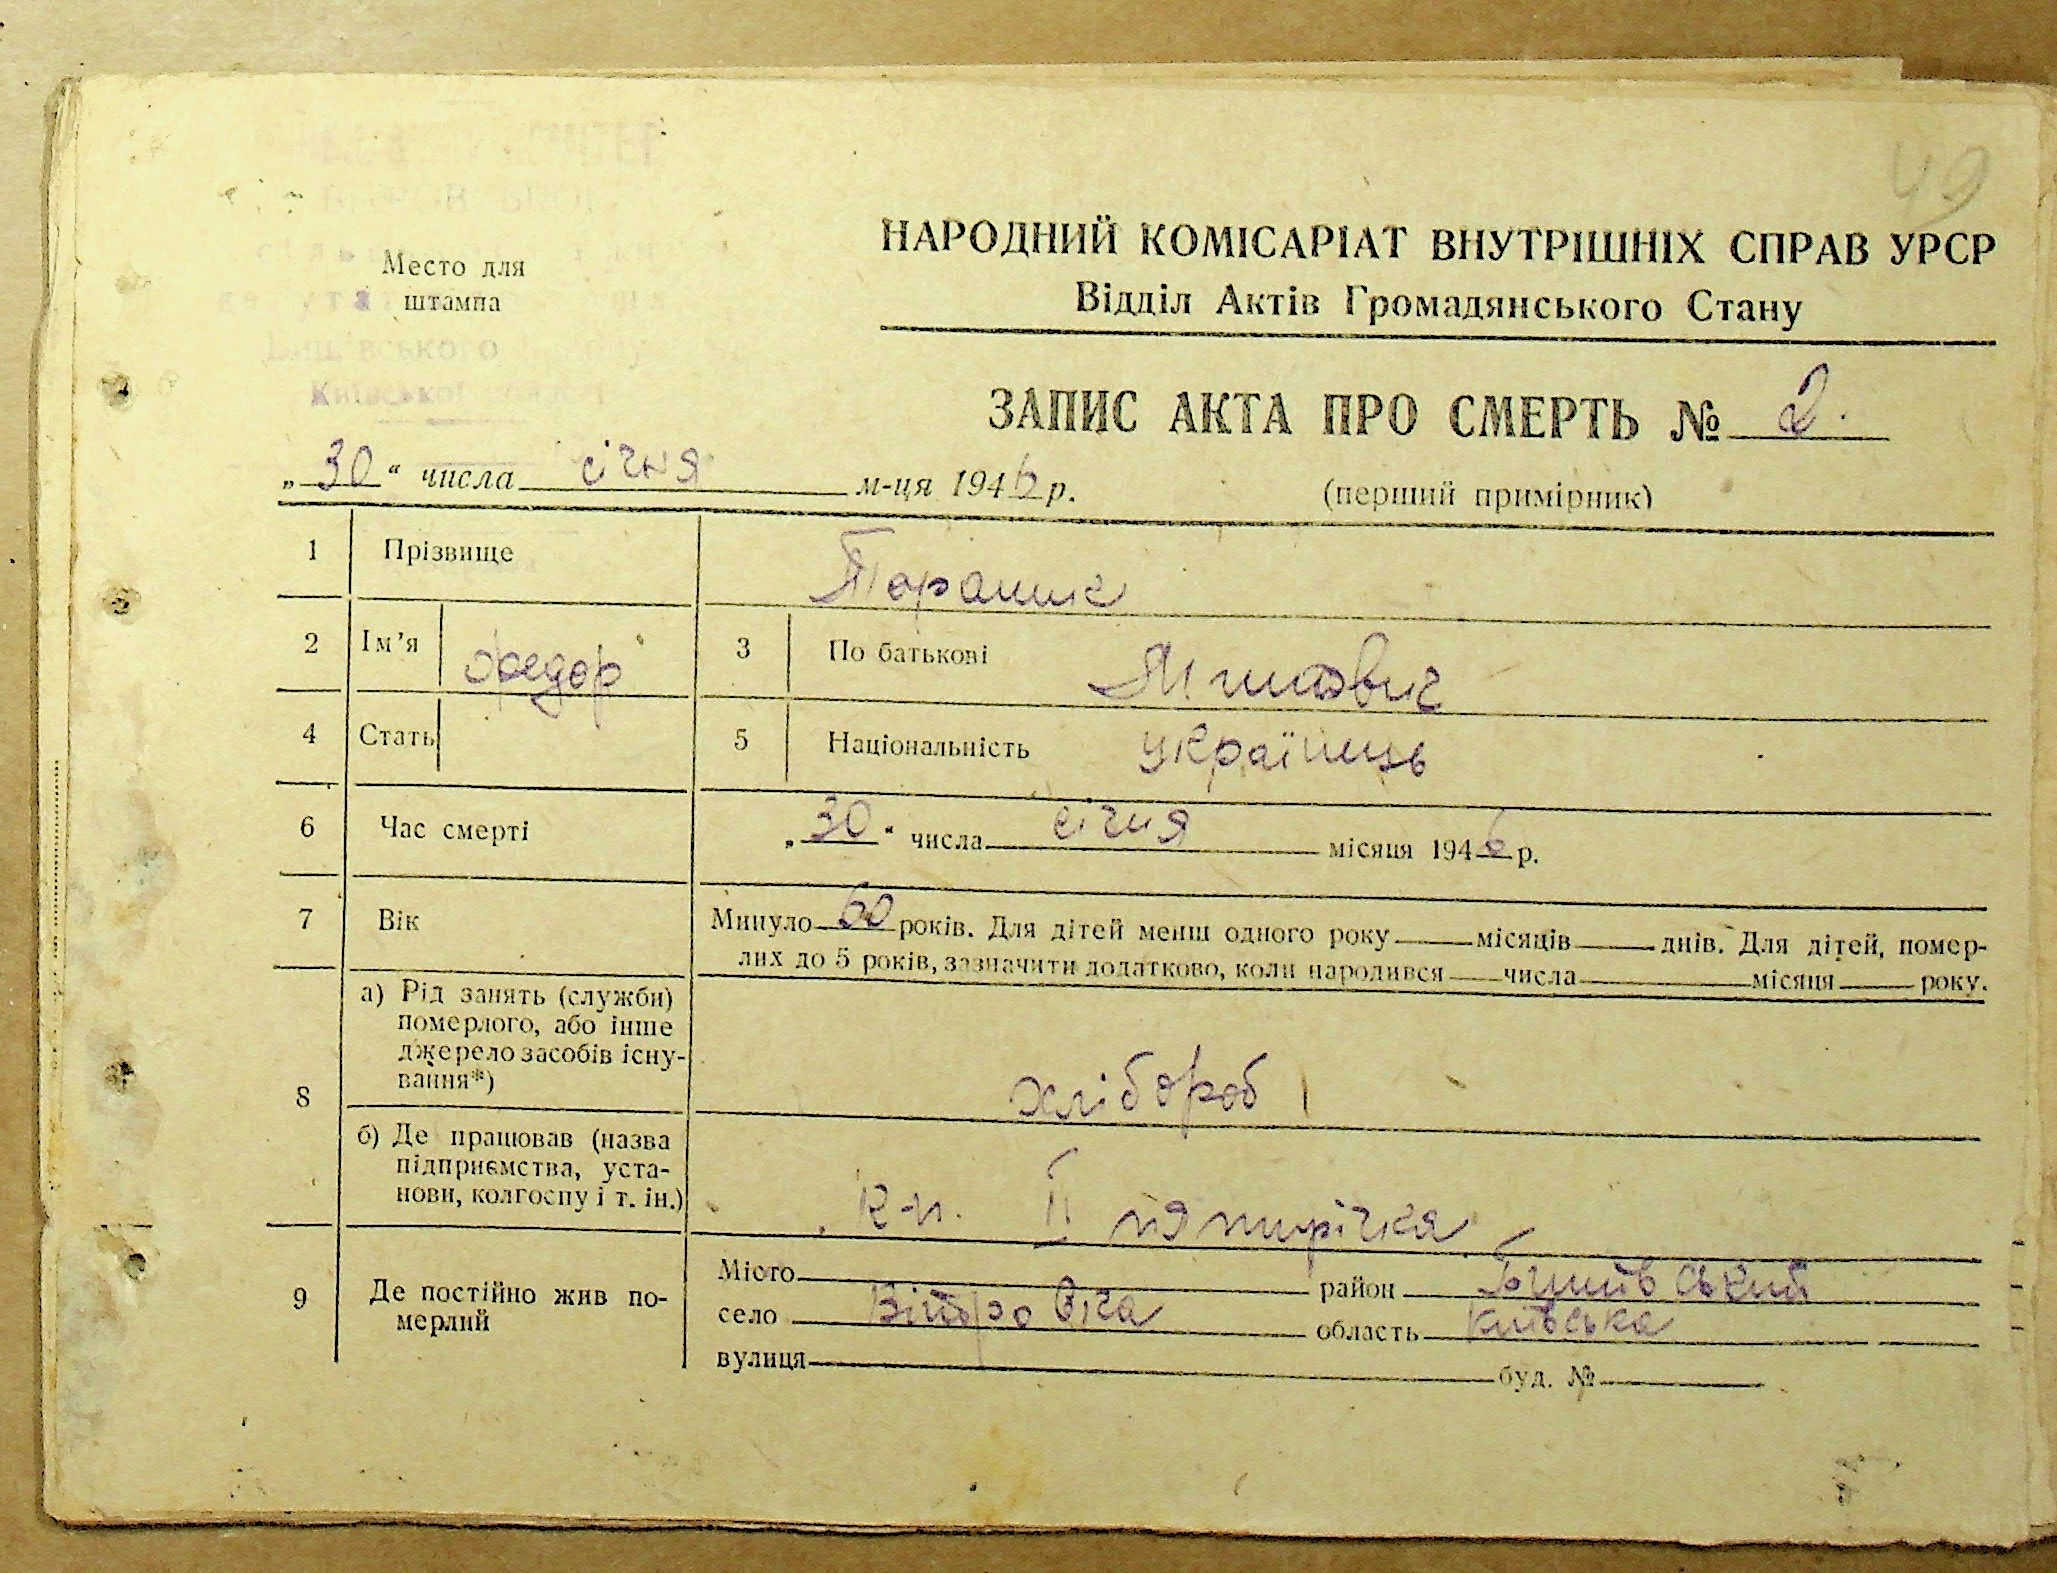 49
НАРОДНИЙ КОМІСАРІАТ ВНУТРІШНІХ СПРАВ УРСР
Відділ Актів Громадянського Стану
Место для
штампа
ЗАПИС АКТА ПРО СМЕРТЬ № 2.
„30“ числа січня м-ця 1946 р.
(перший примірник)
1 Прізвище
2 Ім’я Федор 3 По батькові
4 Стать 5 Національність українець
6 Час смерті „30“ числа січня місяця 1946 р.
7 Вік Минуло 60 років. Для дітей менш одного року місяців днів. Для дітей, помер-
лих до 5 років, зазначити додатково, коли народився числа місяця року.
8 а) Рід занять (служби)
померлого, або інше
джерело засобів існу-
вання*)
хлібороб
б) Де працював (назва
підприємства, уста-
нови, колгоспу і т. ін.)
к-п. ІІ пятирічка
9 Де постійно жив по-
мерлий
Місто район
село область Київська
вулиця буд. №